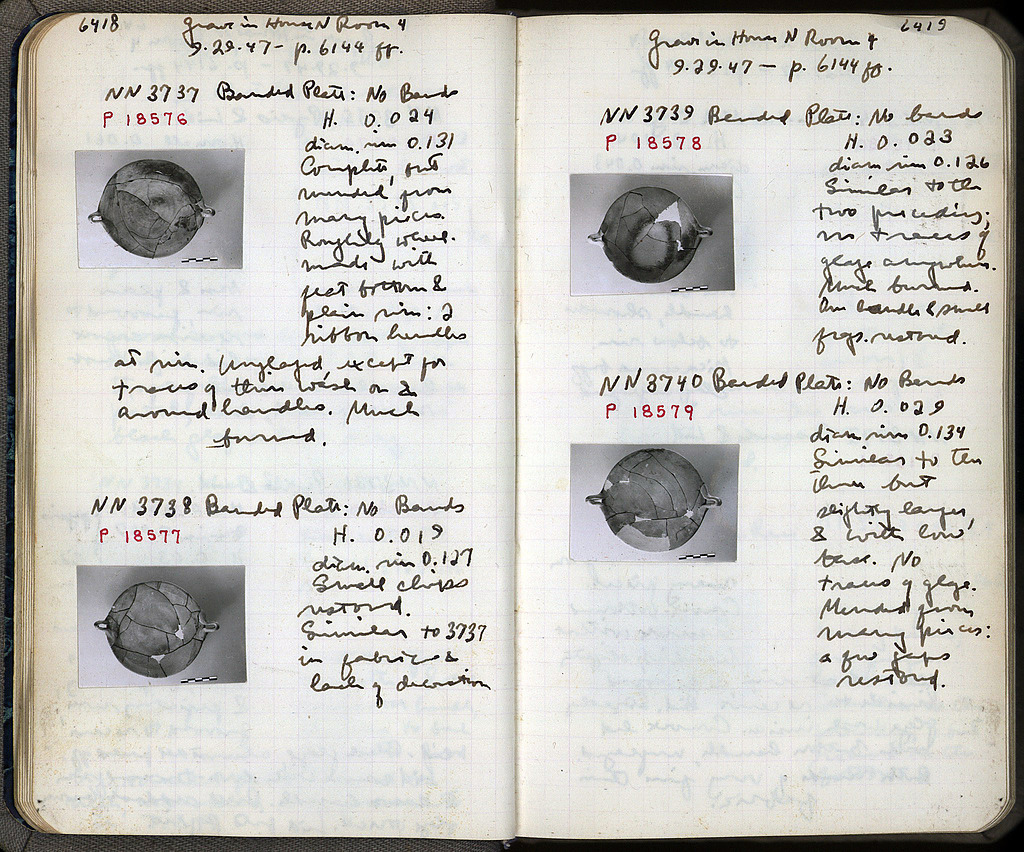 6418
Grave in House N Room 4
9.29.47 — p. 6144 ff.
NN 3737 Banded Plate: No Bands
P 18576
H. 0.024
diam. rim 0.131
Complete, but
mended from
many pieces.
Roughly wheel-
made with
flat bottom &
plain rim: 2
ribbon handles
at rim. Unglazed, except for
traces of thin wash on &
around handles. Much
burned.
NN 3738 Banded Plate: No Bands
P 18577
H. 0.019
diam. rim 0.127
Small chips
restored.
Similar to 3737
in fabric &
lack of decoration
6419
Grave in House N Room 4
9.29.47 — p. 6144 ff.
NN 3739 Banded Plate: No bands
P 18578
H. 0.023
diam rim 0.126
Similar to the
two preceding;
no traces of
glaze anywhere.
Much burned.
One handle & small
frgs. restored.
NN 3740 Banded Plate: No Bands
P 18579
H. 0.029
diam rim 0.134
Similar to the
three but
slightly larger,
& with low
base. No
traces of glaze.
Mended from
many pieces:
a few gaps
restored.